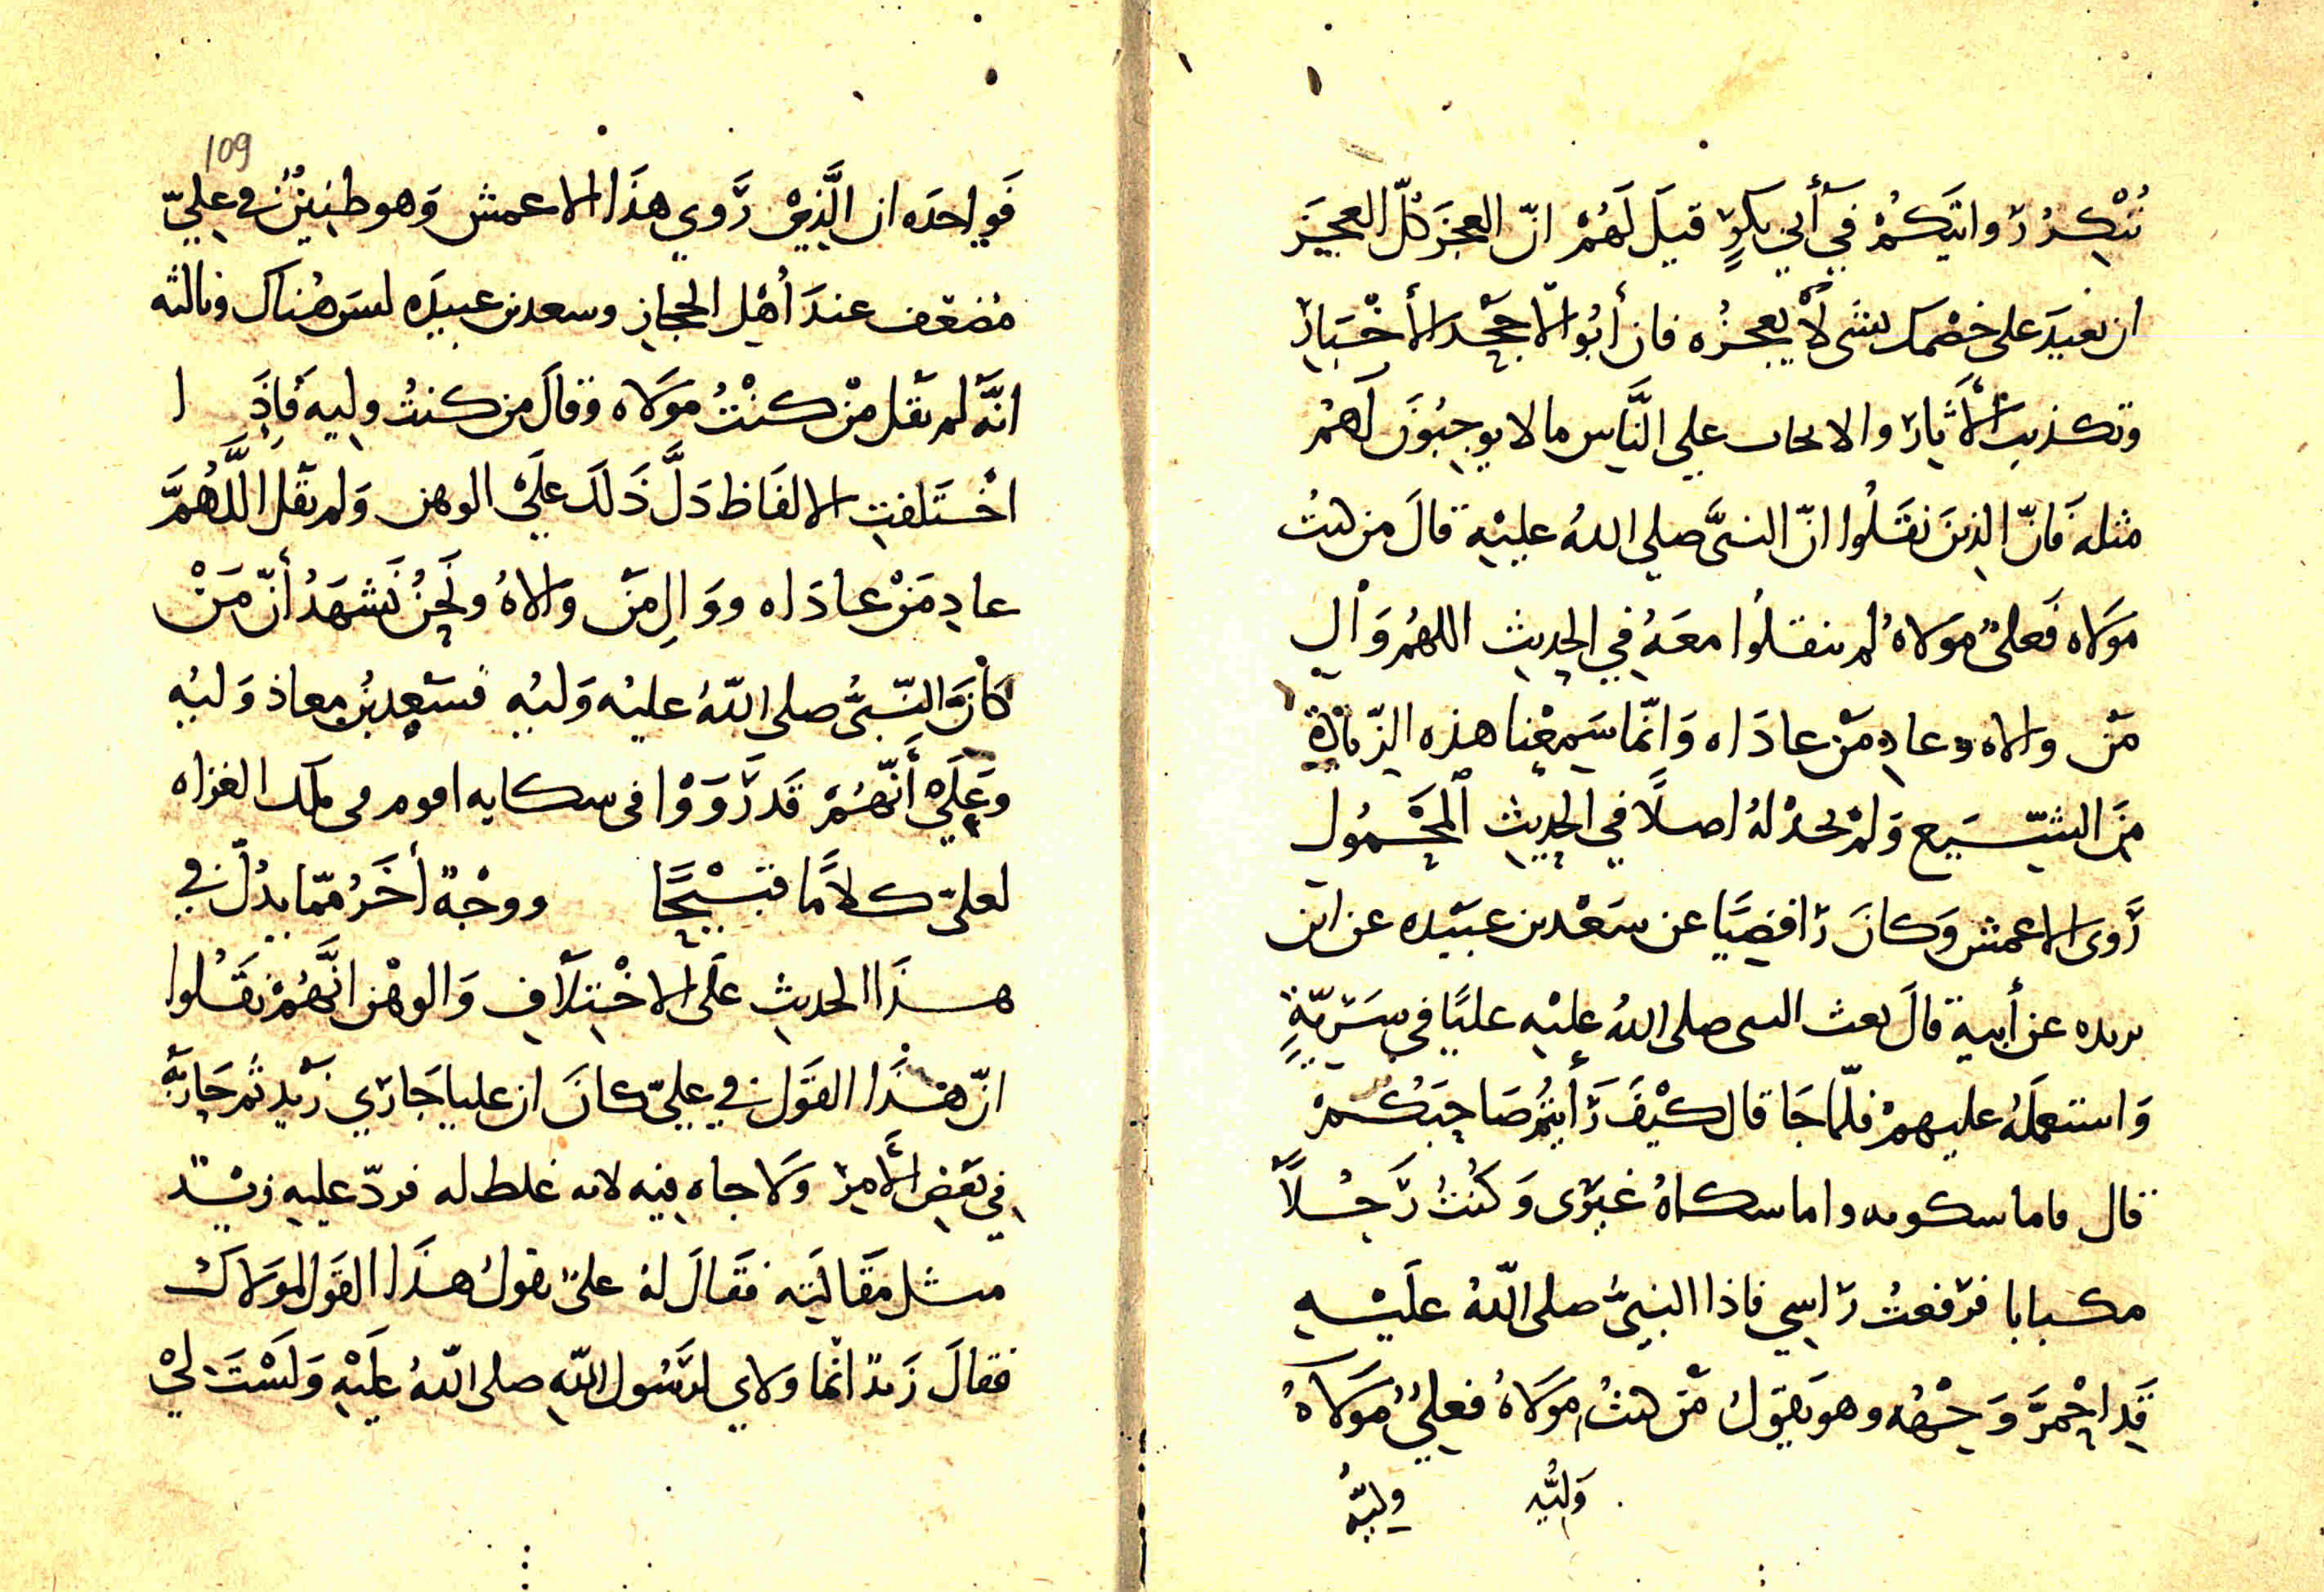 نُنْكِرُ رَوايَتَكُمْ فِي أَبِي بَكْرٍ قِيلَ لَهُمْ انّ العَجْزَ كُلّ العَجِيزَ
ان نعيدَ على خصْمك بشي لَا يعجزُه فان أبُوا الّا جَحْدَ الأخْبَارِ
وتكذيب الأَثَارِ والايجاب علي النَّاسِ مالا يوجِبُونَ لَهُمْ
مثله فَانّ الذين نقَلُوا انّ النبىَّ صلي اللهُ عليْهِ قالَ من كنتُ
مَوَلاه فَعلىٌ مَوَلاهُ لم ينقلُوا معَهُ فِي الحِديثِ اللهُمَ وَالِ
مَنْ والاه وعادِ مَنْ عادَاه وَانّما سَمِعْنا هذه الزّيادَةَ
مِنَ التشّيَيع وَلمْ نجدْ لهُ اصلًا في الحِديثِ المَحْمُولِ
رَوى الاعمش وَكانَ رَافِضِيًا عن سَعْد بن عبَيْده عن ابن
بريده عن أبيهِ قالَ بعث النبى صلى اللهُ عليْهِ عليًا في سَرِيّةٍ
وَاستعمَلَهُ عليهِمْ فلّما جَا قال كيْفَ رَأَيتُمْ صَاحِبَكُمْ
قال فاما شكوته واما شكاهُ غيَرى وَكُنتُ رَجُلًا
مكبابا فرَفعتُ رَاسِي فاذا النبيُّ صلى اللّهُ عَلَيْهِ
قَدِ احْمرَّ وَجْهُه وهو يقوَلُ مَن كنتُ مَوَلاهُ فعلِيٌ مَوَلاهُ
وَلِيُّه وِليُّهُ
109
فَواحدَه ان الَّذِيْ رَوي هذَا الاعمش وَهو ظنِينٌ في علِيّ
مُضعَّف عندَ أهْلِ الحجازِ وسعد بن عبيدَه ليسَ هُناك وثالثه
انَّه لم يَقل مْن كنْتُ مَوَلاه وقالَ من كنتُ وليه فَاِذَ ا
اخْتَلفتِ الالفَاظ دَلَّ ذَلكَ علَيْ الوهنِ وَلم يَقل اللَّهُمَّ
عادِ مَنْ عادَاه ووَالِ مَنْ وَالاهُ ونَحِنُ نَشهَدُ أنّ مَنْ
كاَنَ النّبىُّ صلى اللّهُ عليْه وَليُهِ فسَعِد بنُ معاذ وَليُهِ
وعَلَيْ أَنّهُمْ قَد رَوَوْا فى شكايه اقوم فى تلك الغزاه
لعلىّ كلاَمًا قبَيْحًا ووجْهٌ أخَرُ ممّا يدُلّ في
هذَا الحديثِ عَلَى الاخْتِلَافِ وَالوهْنِ انَّهُمْ نَقَلُوا
انّ هذَا القَولَ في عليّ كانَ ان عليا جَارَي زَيْد ثُم جَارَيَه
فِي بَعضِ الأَمِرْ وَلَا جاه فيه لانه غلط له فردّ عليهِ زيْد
مثل مَقَالَتِهِ فقَالَ لهُ علىٌ تقولُ هذَا القَولَ لموَلاكَ
فقالَ زَيدٌ انّما وَلاي لرَسُولِ اللّهِ صلى اللّهُ علَيْهِ وَلَسْتَ لِيْ